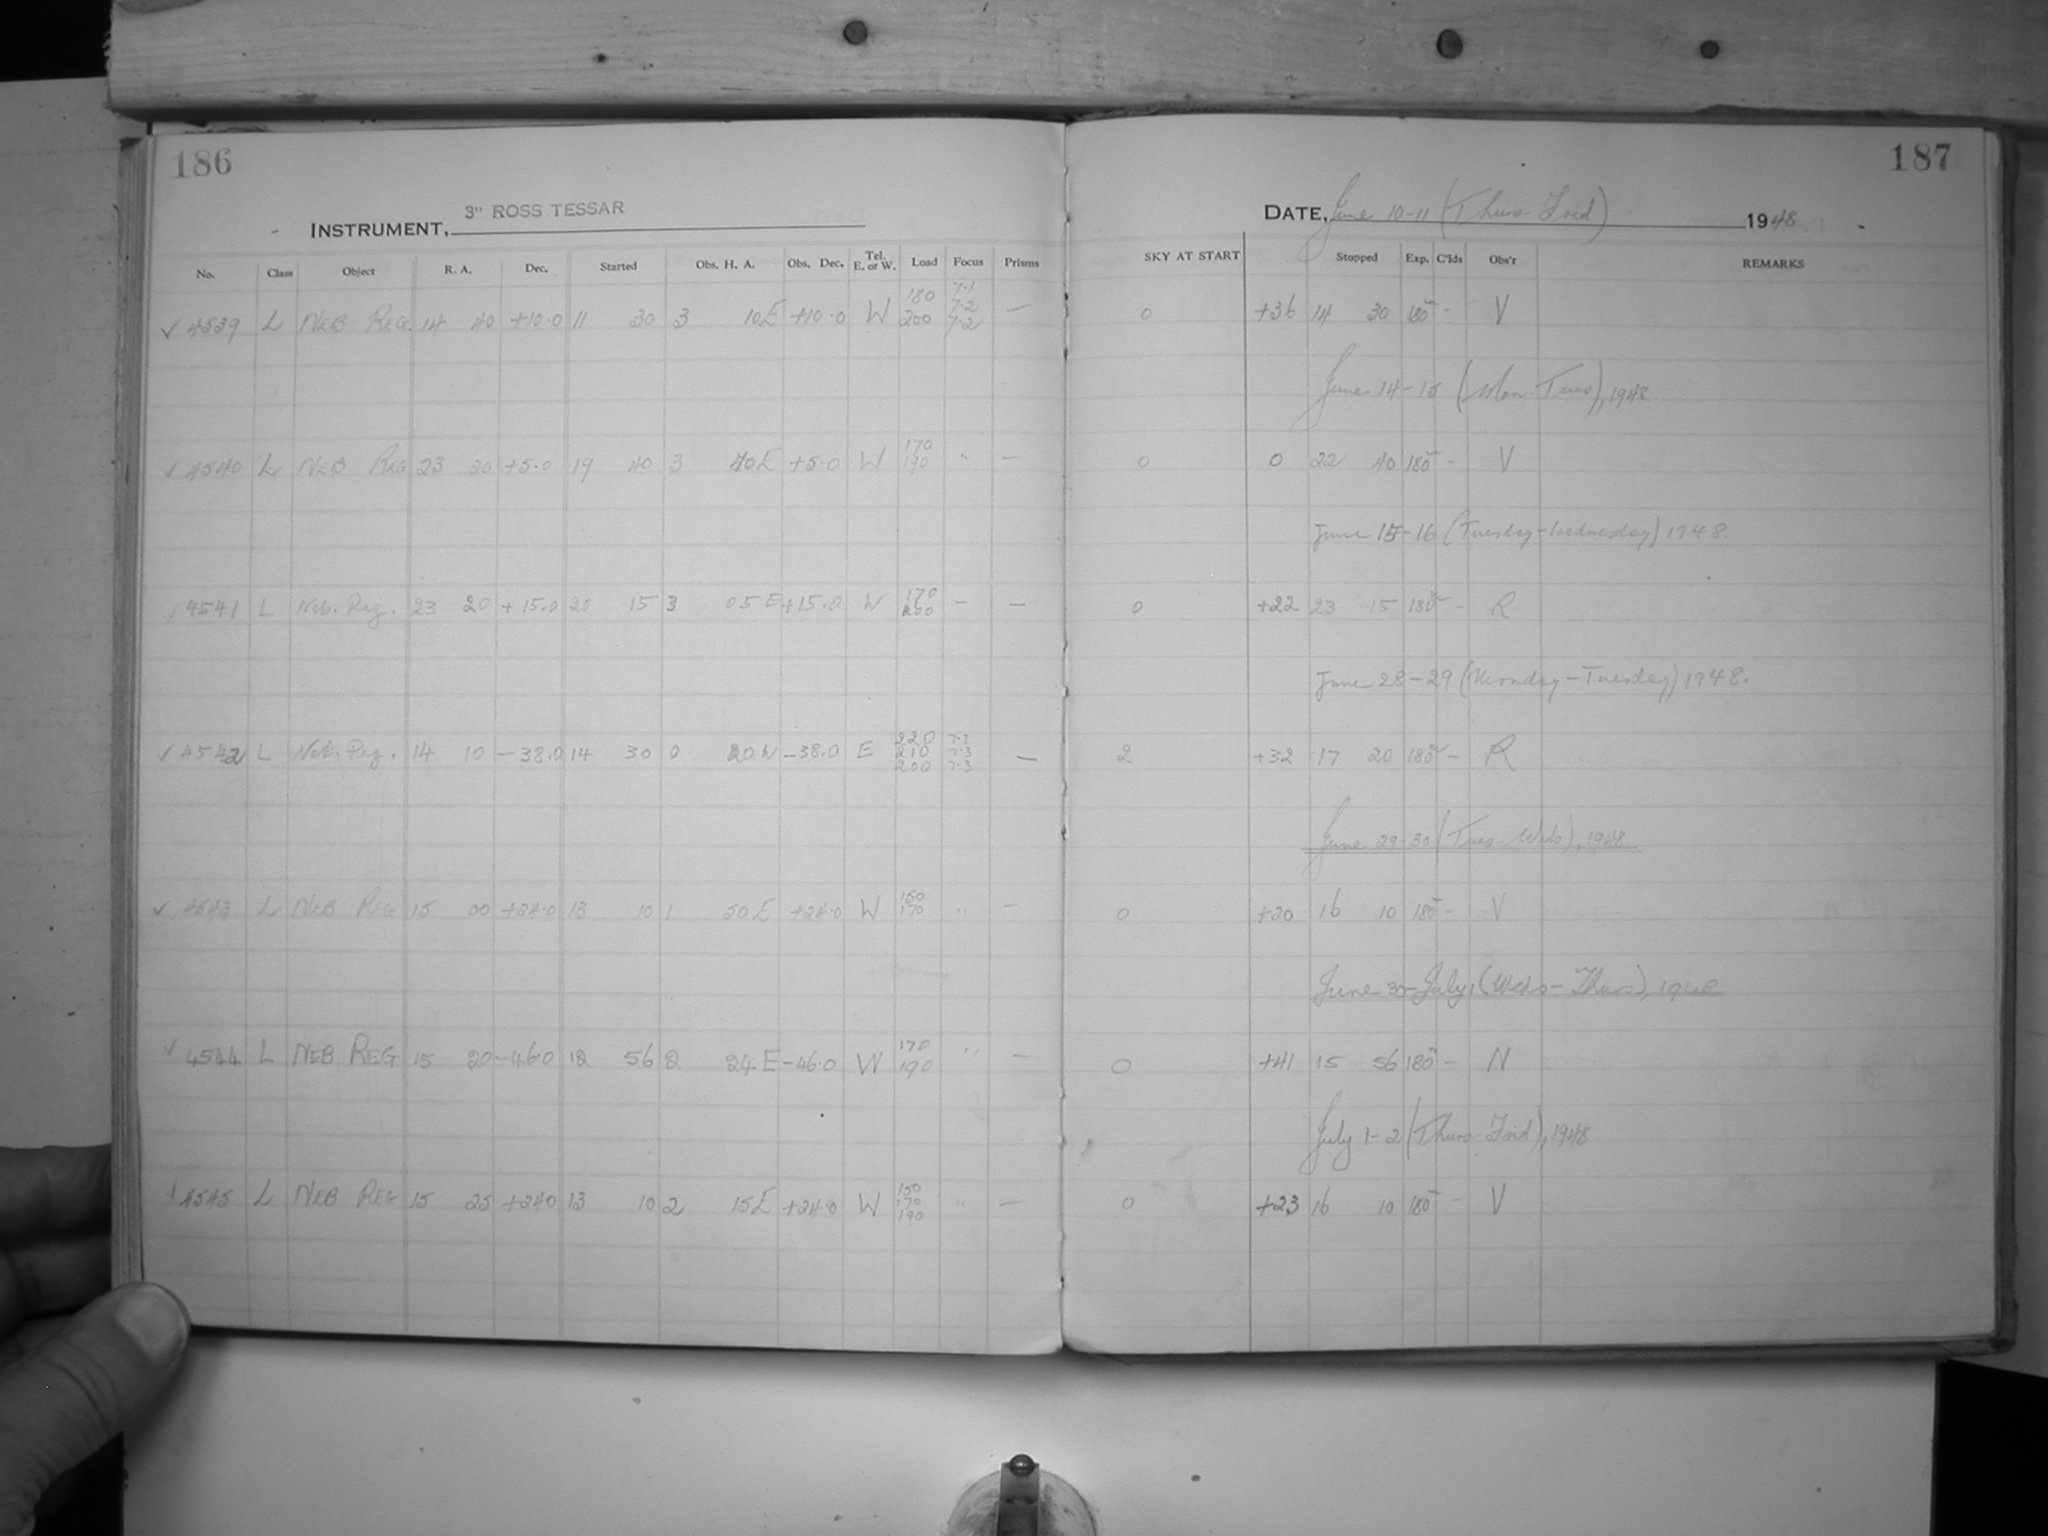 186
187
INSTRUMENT, 3" ROSS TESSAR
DATE, June 10-11 (Thurs-Frid) 1948
No. Class Object R. A. Dec. Started Obs. H. A. Obs. Dec. Tel. E. or W. Load Focus Prisms SKY AT START Stopped Exp. C'lds Obs'r REMARKS
✓ 4539 L NEB REG. 14 40 +10.0 11 30 3 10E +10.0 W 180 200 7.1 7.2 7.2 — 0 +36 14 30 180m - V
June 14-15 (Mon-Tues), 1948
✓ 4540 L NEB REG 23 20 +5.0 19 40 3 40E +5.0 W 170 190 " — 0 0 22 40 180m - V
June 15-16 (Tuesday-Wednesday) 1948.
✓ 4541 L Neb. Reg. 23 20 +15.0 20 15 3 05E +15.0 W 170 200 — — 0 +22 23 15 180m - R
June 28-29 (Monday-Tuesday) 1948.
✓ 4542 L Neb. Reg. 14 10 -38.0 14 30 0 20W -38.0 E 220 210 200 7.2 7.3 7.3 — 2 +32 17 20 180m - R
June 29-30 (Tues-Weds), 1948
✓ 4543 L NEB REG 15 00 +24.0 13 10 1 50E +24.0 W 150 170 " — 0 +20 16 10 180m - V
June 30-July 1 (Weds-Thurs), 1948
✓ 4544 L NEB REG 15 20 -46.0 12 56 2 24E -46.0 W 170 190 " — 0 +41 15 56 180m - N
July 1-2 (Thurs-Frid), 1948
✓ 4545 L NEB REG 15 25 +24.0 13 10 2 15E +24.0 W 150 170 190 " — 0 +23 16 10 180m - V